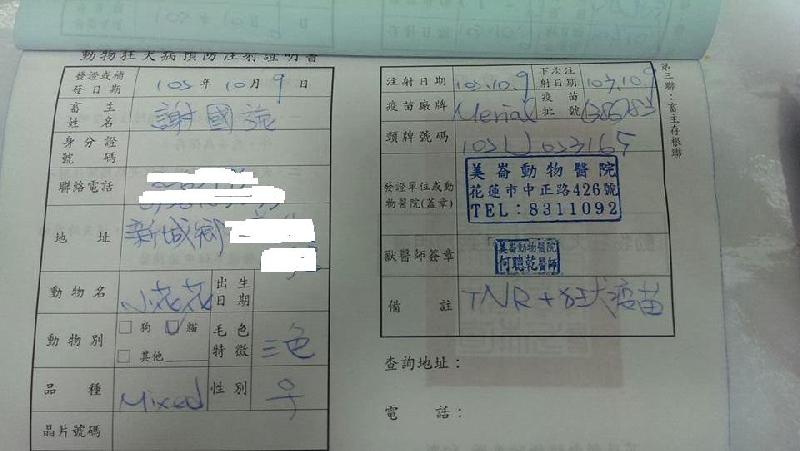 動物狂犬病預防注射證明書
第三聯：畜主存根聯
發證或補
在日期 103年10月9日
畜主
姓名 謝國
身分證
號碼
聯絡電話
地址 新城鄉
動物名 小花花 出生
日期
動物別 狗 貓
其他 毛色
特徵 三色
品種 Mixed 性別 ♀
晶片號碼
注射日期 103.10.9 下次注
射日期
疫苗廠牌 Merial 疫苗
批號
頸牌號碼
發證單位或動
物醫院(蓋章) 美崙動物醫院
花蓮市中正路426號
TEL:8311092
獸醫師簽章 美崙動物醫院
何聰乾醫師
備註 TNR+狂犬疫苗
查詢地址：
電話：